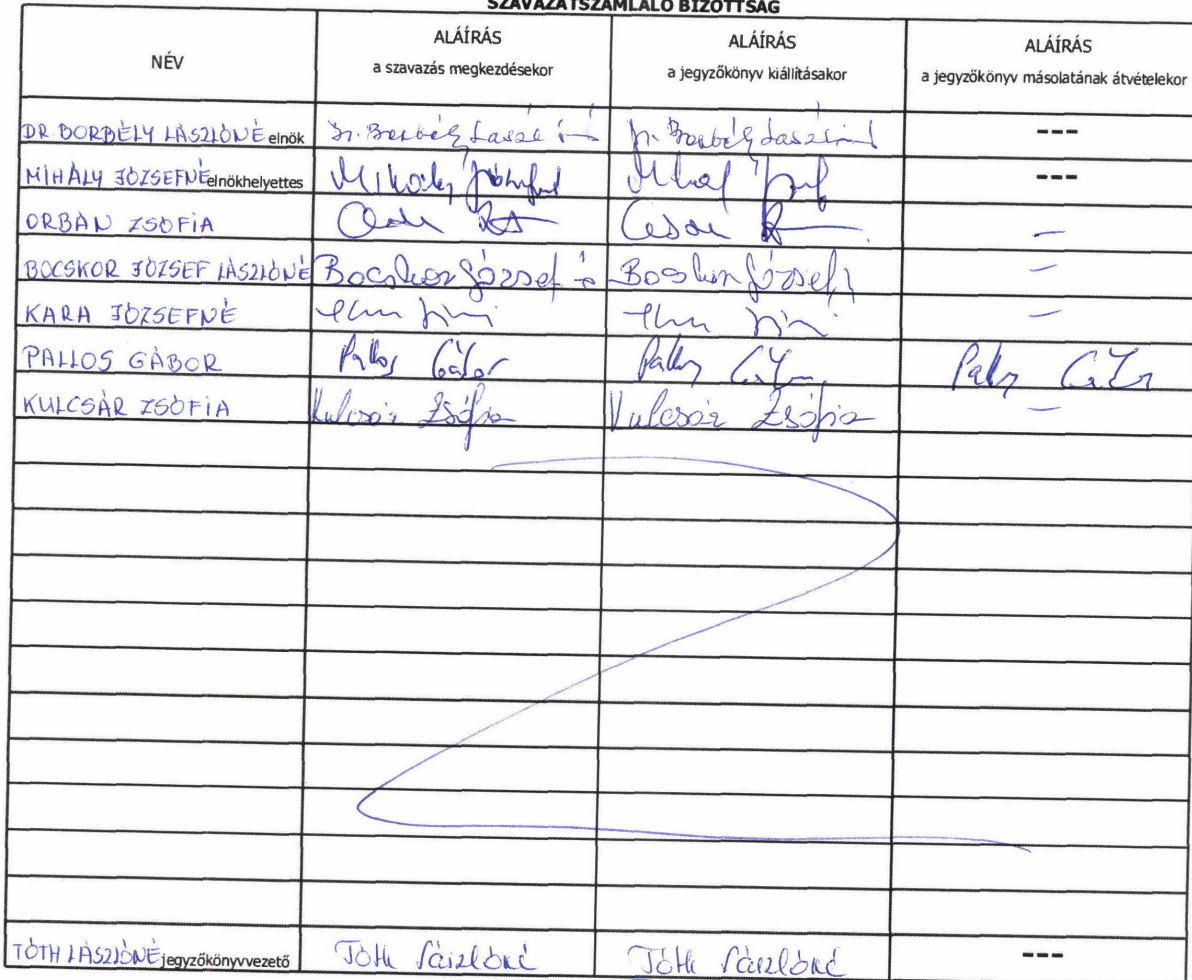 SZAVAZATSZÁMLÁLÓ BIZOTTSÁG
NÉV
ALÁÍRÁS
a szavazás megkezdésekor
ALÁÍRÁS
a jegyzőkönyv kiállításakor
ALÁÍRÁS
a jegyzőkönyv másolatának átvételekor
DR BORBÉLY LÁSZLÓNÉ elnök Dr. Borbély Dr. Borbély ---
MIHÁLY JÓZSEFNÉ elnökhelyettes Mihály ---
ORBÁN ZSÓFIA –
BOCSKOR JÓZSEF LÁSZLÓNÉ Bocskor József Bocskor József –
KARA JÓZSEFNÉ –
PALLOS GÁBOR Pallos Gábor Pallos Pallos
KULCSÁR ZSÓFIA Kulcsár Zsófia Kulcsár Zsófia –
TÓTH LÁSZLÓNÉ jegyzőkönyvvezető Tóth Lászlóné Tóth Lászlóné ---